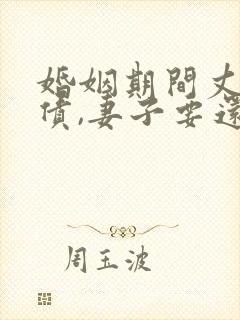 婚姻期間丈
債,妻子要還
周玉波